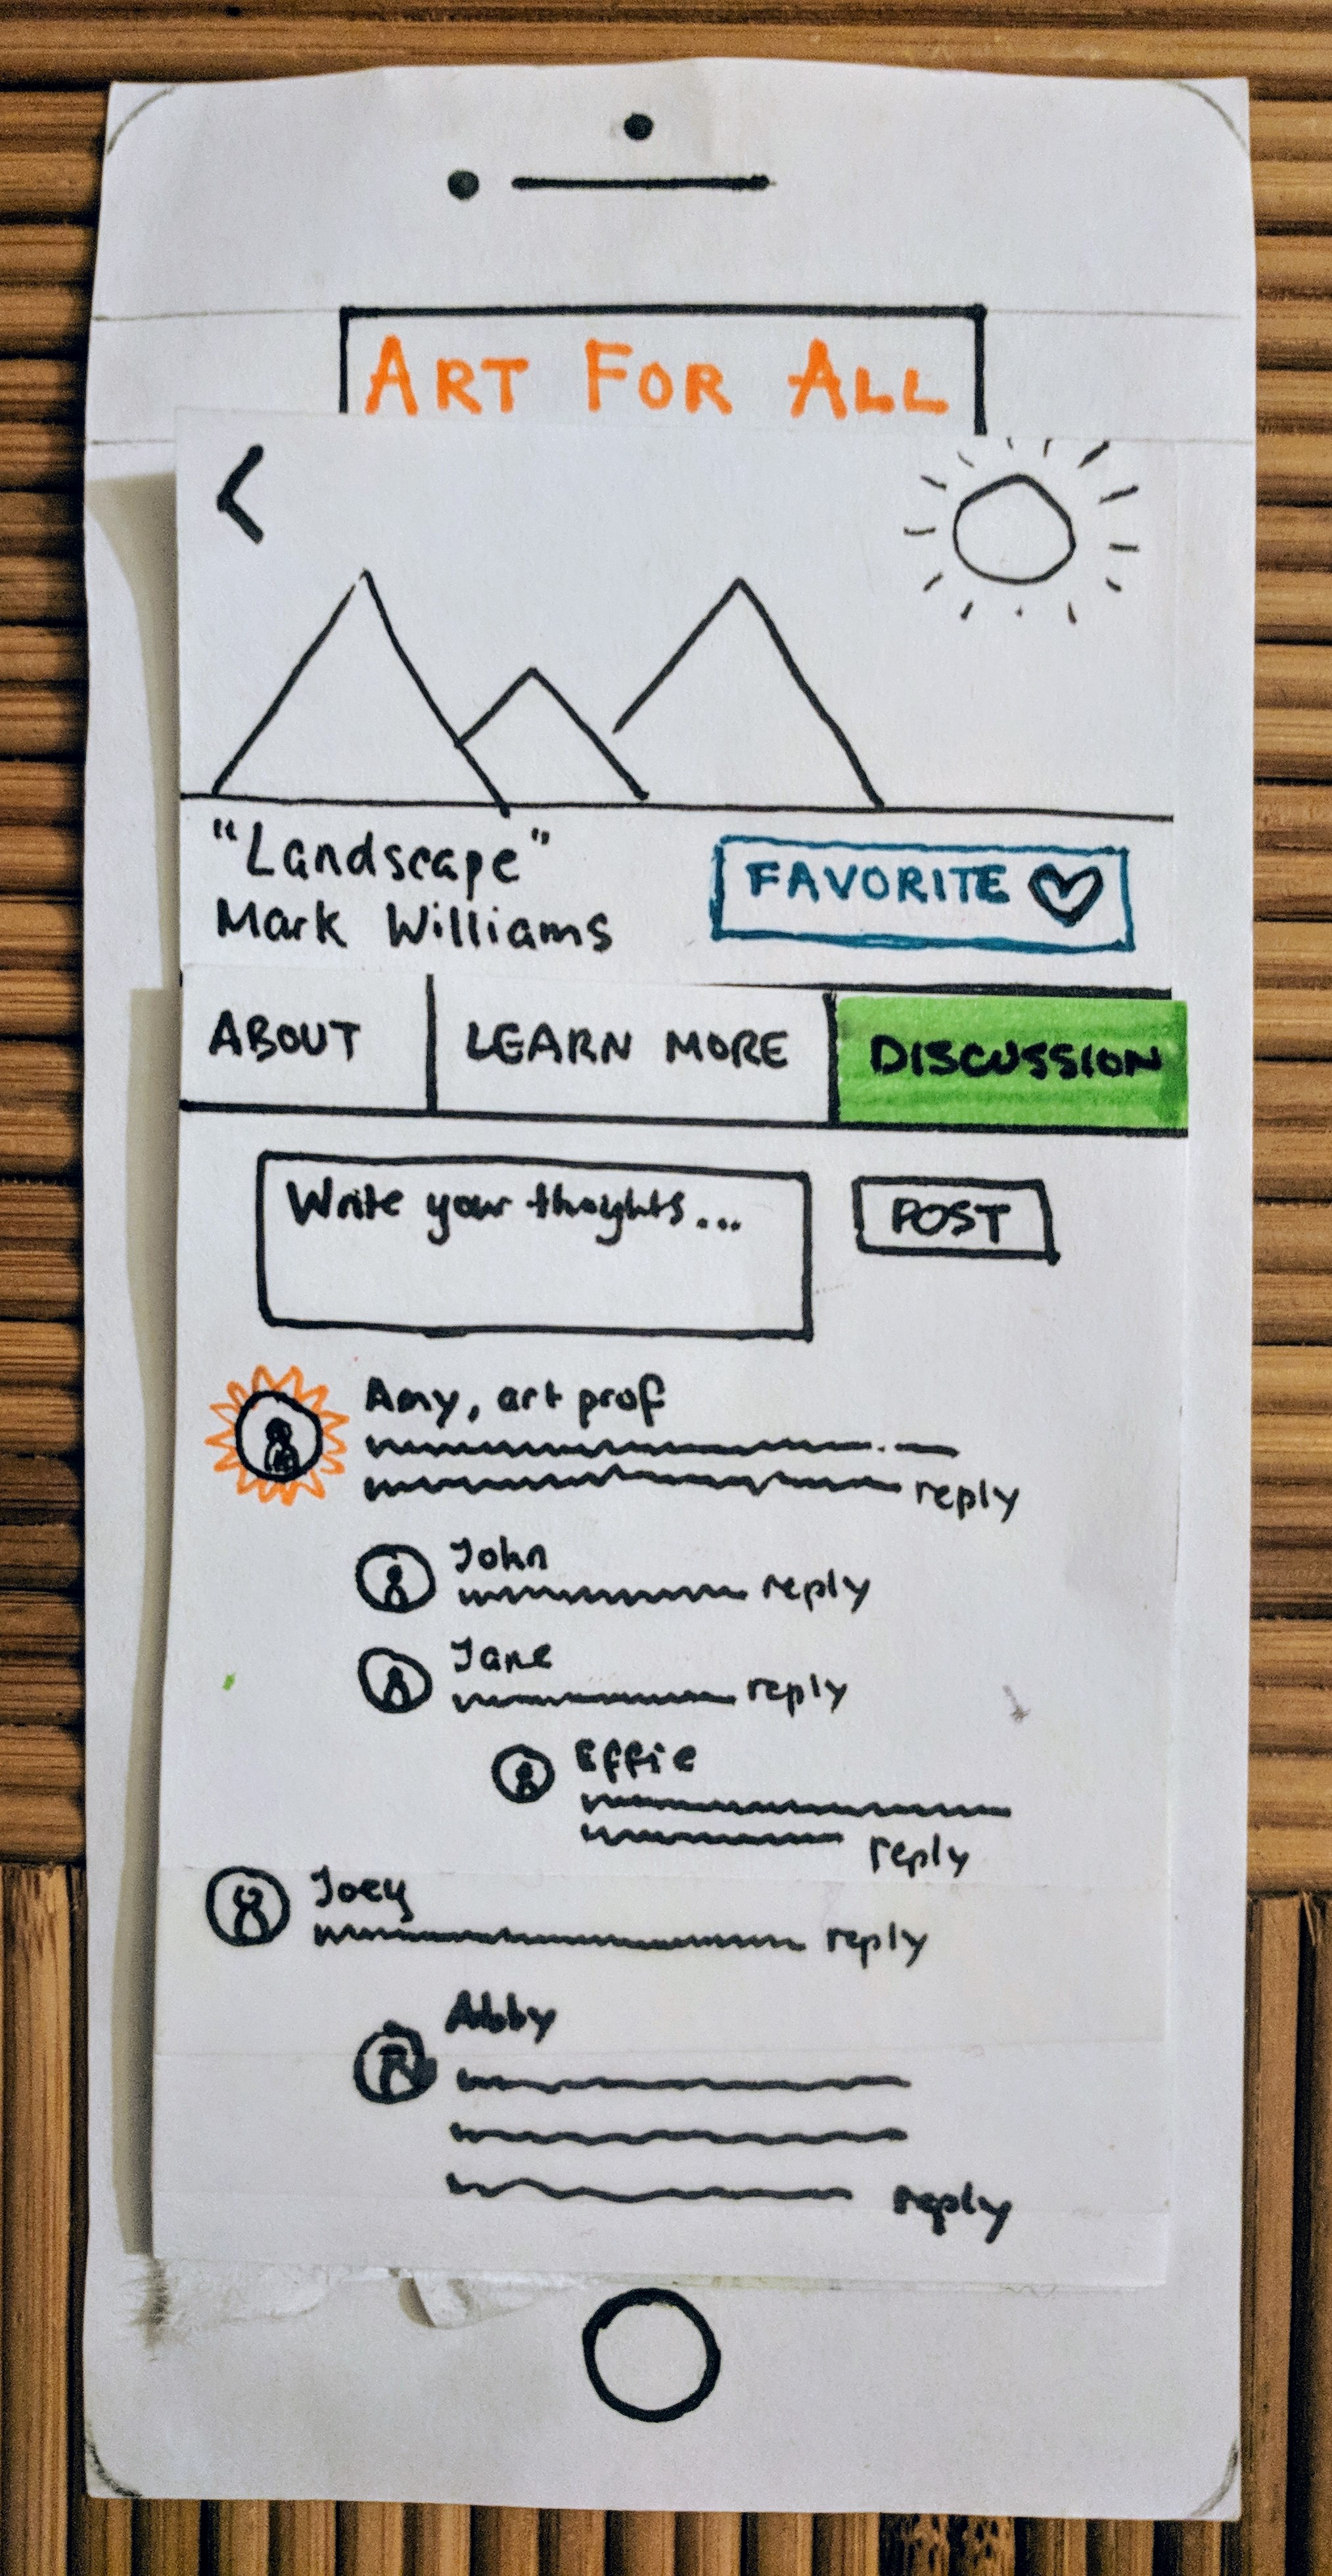 ART FOR ALL
"Landscape"
Mark Williams
FAVORITE
ABOUT
LEARN MORE
DISCUSSION
Write your thoughts...
POST
Amy, art prof
reply
John
reply
Jane
reply
Effie
reply
Joey
reply
Abby
reply